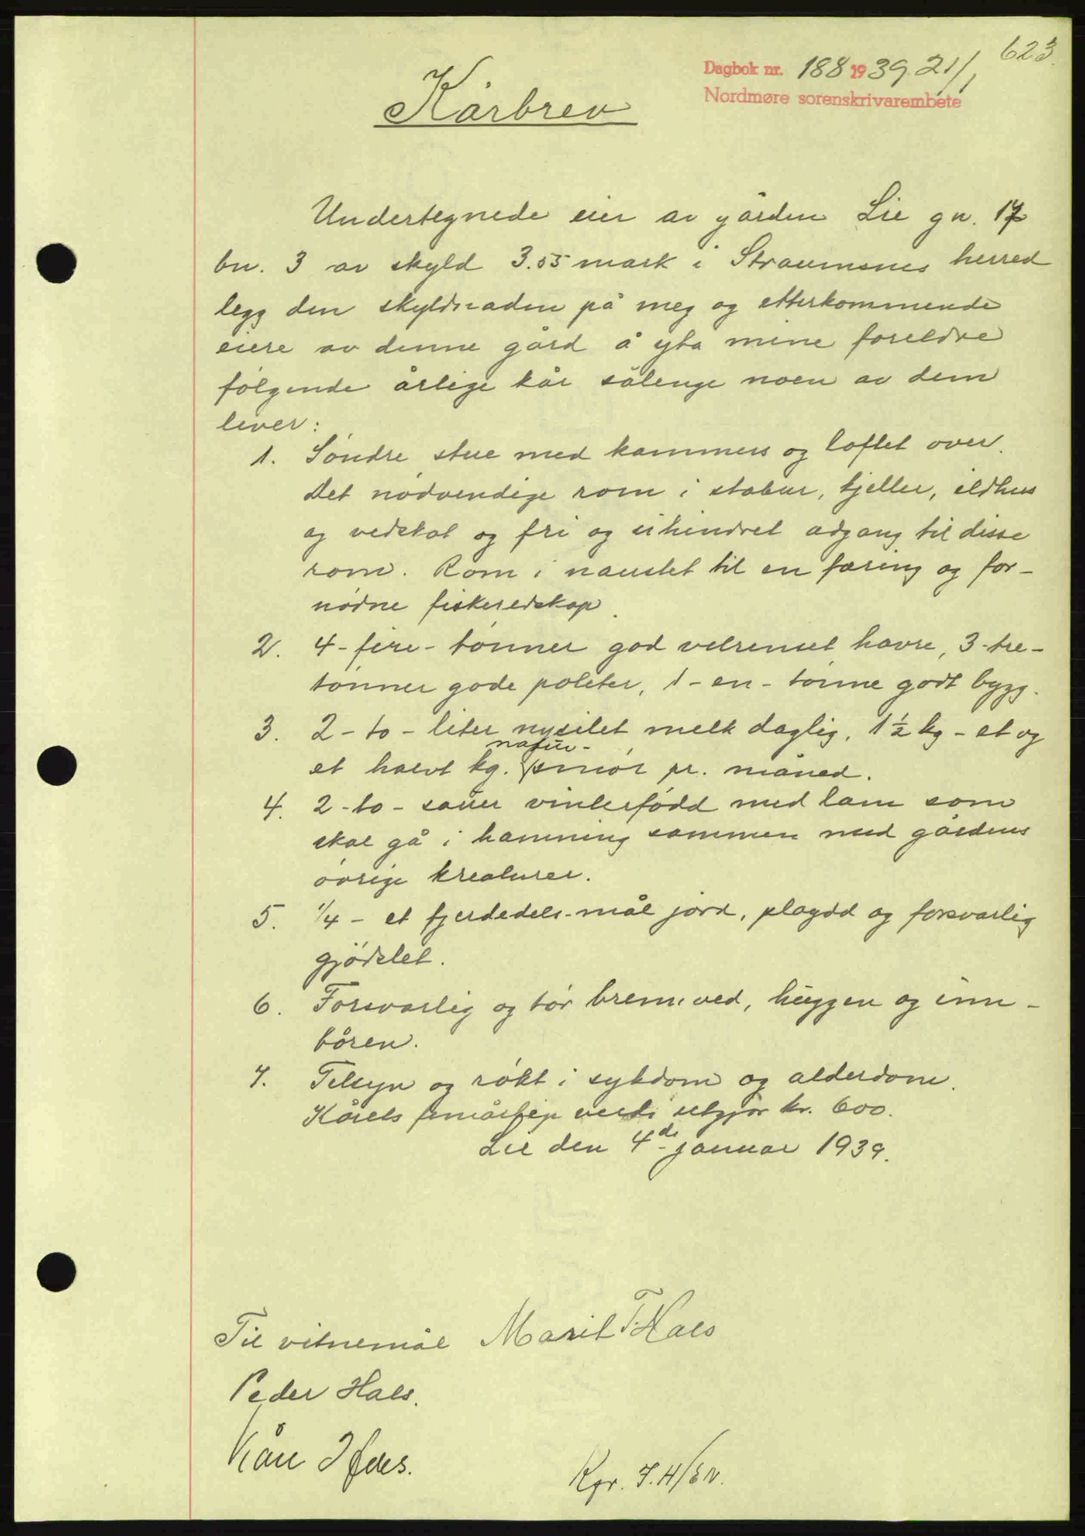 623.
Dagbok nr. 188 1939 21/1
Nordmøre sorenskrivarembete
Kårbrev
Undertegnede eier av gården Lie gn. 17
bn. 3 av skyld 3.55 mark i Straumsnes herred
legg den skyldnaden på meg og etterkommende
eiere av denne gård å yta mine foreldre
følgende årlige kår sålenge noen av dem
lever:
1. Søndre stue med kammers og loftet over.
Det nødvendige rom i stabur, kjeller, ildhus
og vedskot og fri og uhindret adgang til disse
rom. Rom i naustet til en færing og for-
nødne fiskeredskap.
2. 4-fire-tønner god velrenset havre, 3-tre-
tønner gode poteter, 1-en-tønne godt bygg.
3. 2-to-liter nysilet melk daglig, 1½ kg-et og
et halvt kg. natur-smør pr. måned.
4. 2-to-sauer vinterfødd med lam som
skal gå i hamning sammen med gårdens
øvrige kreaturer.
5. 1/4-et fjerdedels-mål jord, pløgd og forsvarlig
gjødslet.
6. Forsvarlig og tør brenneved, huggen og inn-
båren.
7. Tilsyn og røkt i sykdom og alderdom.
Kårets femårige verdi utgjør kr. 600.
Lie den 4de januar 1939.
Til vitnemål Marit T. Hals
Peder Hals.
Kåre
Kgr. T.H/EN.